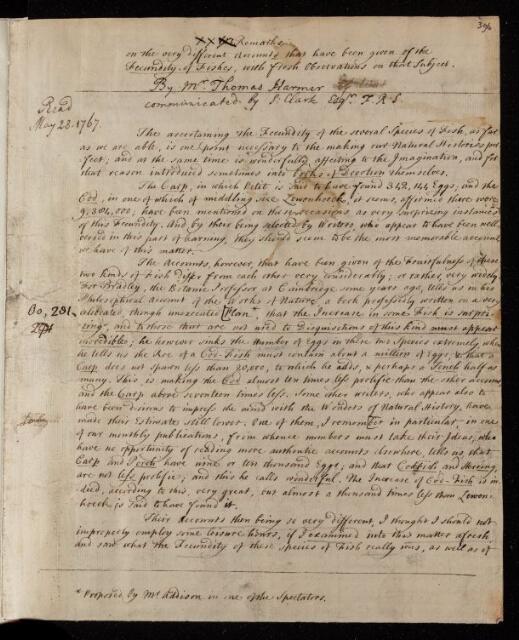 XXXIX Remarks
on the very different Accounts that have been given of the
Fecundity of Fishes, with fresh Observations on that Subject.
By Mr Thomas Harmer
communicated by S. Clark Esqr. F.R.S.
Read
May 28. 1767.
The ascertaining the Fecundity of the several Species of Fish, as far
as we are able, is one point necessary to the making our Natural Histories per
fect; and at the same time is wonderfully affecting to the Imagination, and for
that reason introduced sometimes into books of Devotion themselves.
The Carp, in which Petit is said to have found 342,144 Eggs, and the
Cod, in one of which of middling size Lewenhoeck, it seems, affirmed there were
9,384,000, have been mentioned on these occasions as very surprizing instances
of this Fecundity. And by their being selected by Writers who appear to have been well
versed in this part of Learning, they should seem to be the most memorable accounts
we have of this matter.
The Accounts, however, that have been given of the Fruitfulness of these
two kinds of Fish differ from each other very considerably, or rather, very widely.
For Bradley, the Botanic Professor at Cambridge some years ago, tells us in his
Philosophical Account of the Works of Nature, a book professedly written on a very
celebrated though unexecuted Plan*, that the Increase in some Fish is surpri
zing, and to those that are not used to Disquisitions of this kind must appear
incredible; he however sinks the Number of Eggs in these two Species extremely, when
he tells us the Roe of a Cod-Fish must contain about a million of Eggs, & that a
Carp does not Spawn less than 20,000, to which he adds, & perhaps a Tench half as
many. This is making the Cod almost ten times less prolific than the other accounts
and the Carp above seventeen times less. Some other writers, who appear also to
have been desirous to impress the mind with the Wonders of Natural History, have
made their Estimate still lower. One of them, I remember in particular, in one
of our monthly publications, from whence numbers must take their Ideas, who
have no opportunity of reading more authentic accounts elsewhere, tells us that
Carp and Perch have nine or ten thousand Eggs; and that Codfish and Herring
are not less prolific, and this he calls wonderful. The Increase of Cod-Fish is in
deed, according to this, very great, but almost a thousand times less than Lewen-
hoeck is said to have found it.
Their Accounts then being so very different, I thought I should not
improperly employ some leisure hours, if I examined into this matter afresh,
and saw what the Fecundity of these species of Fish really was, as well as of
* Proposed by Mr Addison in one of the Spectators.